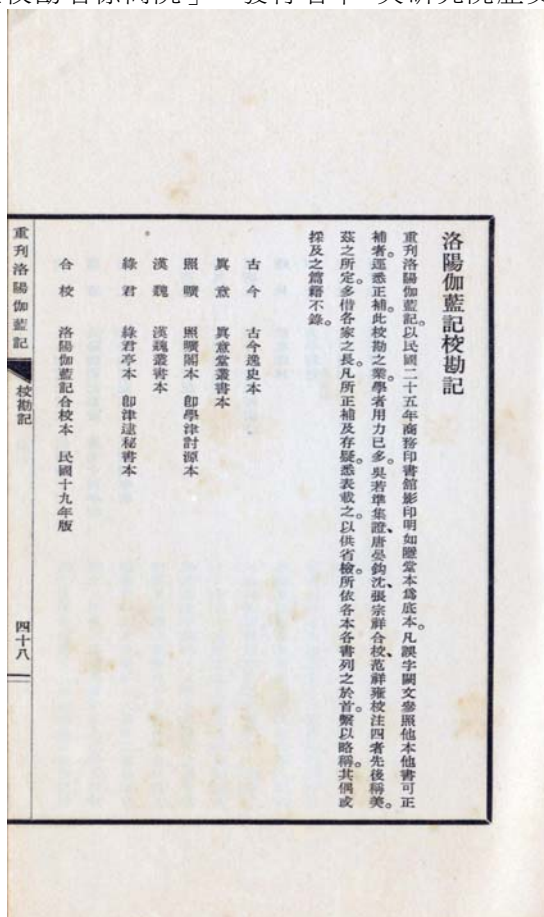 勘者徐高阮」 發行者中 央研究院歷
洛陽伽藍記校勘記
重刊洛陽伽藍記以民國二十五年商務印書館影印明如隱堂本爲底本。凡誤字闕文參照他本他書可正
補者逕悉正補。此校勘之業學者用力已多。吳若準集證、唐晏鈎沈、張宗祥合校、范祥雍校注四者先後稱美。
茲之所定多借各家之長。凡所正補及存疑悉表載之。以供省檢。所依各本各書列之於首。繫以略稱。其偶或
採及之篇籍不錄。
古今 古今逸史本
眞意 眞意堂叢書本
照曠 照曠閣本 卽學津討源本
漢魏 漢魏叢書本
綠君 綠君亭本 卽津逮秘書本
合校 洛陽伽藍記合校本 民國十九年版
重刊洛陽伽藍記 校勘記 四十八